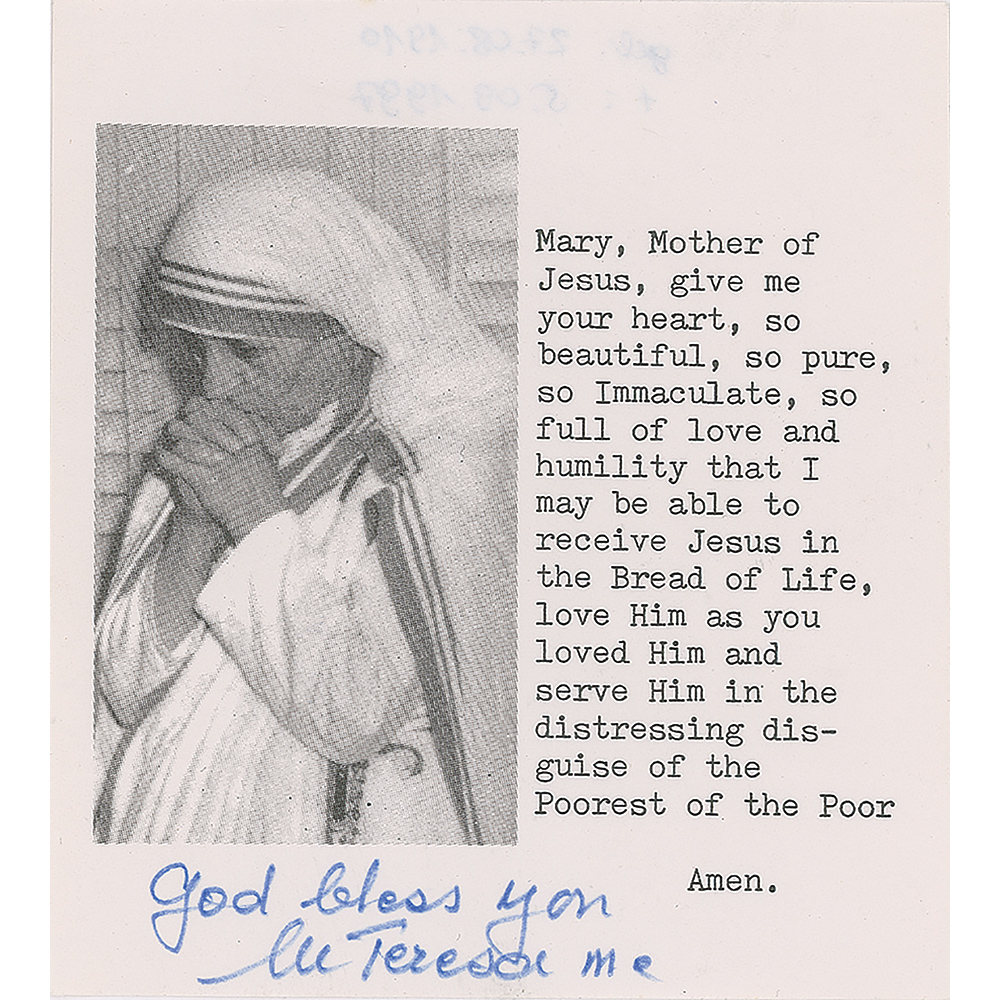 Mary, Mother of
Jesus, give me
your heart, so
beautiful, so pure,
so Immaculate, so
full of love and
humility that I
may be able to
receive Jesus in
the Bread of Life,
love Him as you
loved Him and
serve Him in the
distressing dis-
guise of the
Poorest of the Poor
Amen.
God bless you
M Teresa mc